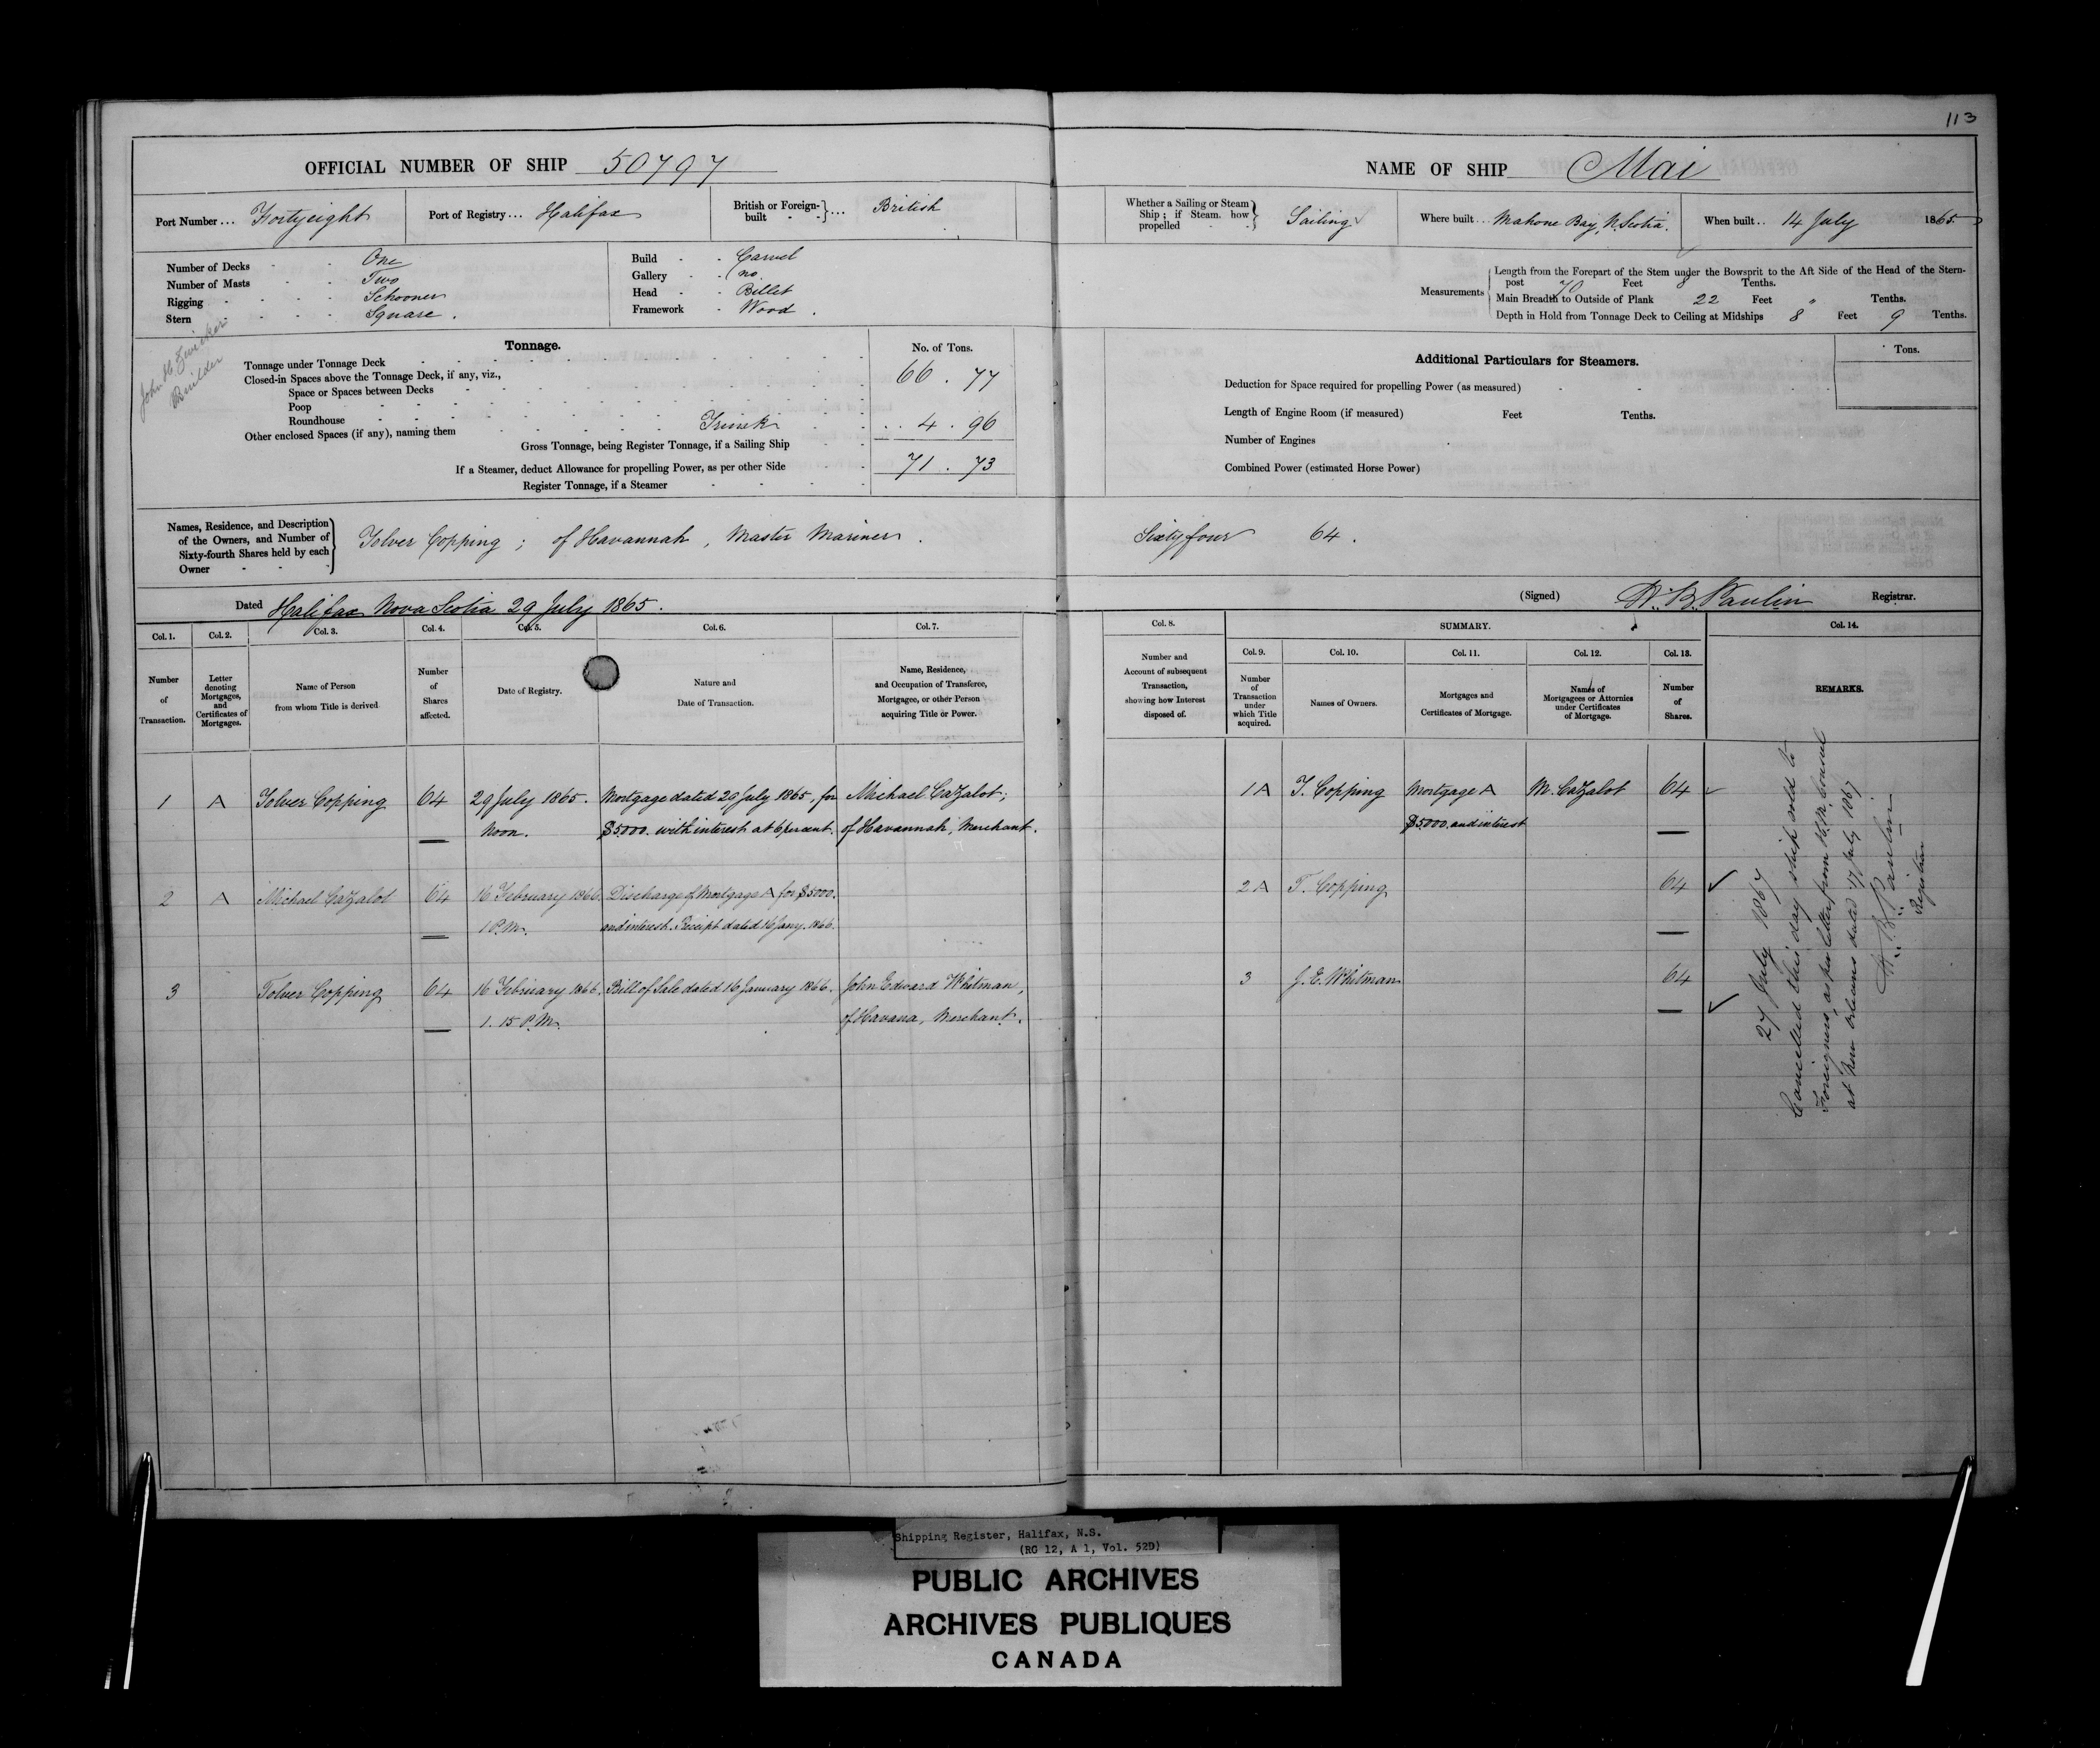 113
OFFICIAL NUMBER OF SHIP 50797
NAME OF SHIP Mai
Port Number ... Fortyeight
Port of Registry ... Halifax
British or Foreign-built ... British
Whether a Sailing or Steam Ship; if Steam. how propelled Sailing
Where built ... Mahone Bay, N. Scotia.
When built .. 14 July 1865
Number of Decks One
Number of Masts Two
Rigging Schooner
Stern Square.
Build Carvel
Gallery no
Head Billet
Framework Wood.
Measurements
Length from the Forepart of the Stem under the Bowsprit to the Aft Side of the Head of the Stern-
post 70 Feet 8 Tenths.
Main Breadth to Outside of Plank 22 Feet " Tenths.
Depth in Hold from Tonnage Deck to Ceiling at Midships 8 Feet 9 Tenths.
John H. Zwicker
Builder
Tonnage.
No. of Tons.
Tonnage under Tonnage Deck 66.77
Closed-in Spaces above the Tonnage Deck, if any, viz.,
Space or Spaces between Decks
Poop
Roundhouse
Other enclosed Spaces (if any), naming them 4.96
Gross Tonnage, being Register Tonnage, if a Sailing Ship
If a Steamer, deduct Allowance for propelling Power, as per other Side 71.73
Register Tonnage, if a Steamer
Additional Particulars for Steamers.
Tons.
Deduction for Space required for propelling Power (as measured)
Length of Engine Room (if measured) Feet Tenths.
Number of Engines
Combined Power (estimated Horse Power)
Names, Residence, and Description
of the Owners, and Number of
Sixty-fourth Shares held by each
Owner
Tolver Copping; of Havannah, Master Mariner. Sixtyfour 64.
Dated Halifax Nova Scotia 29 July 1865.
(Signed) H. B. Paulin Registrar.
Col. 1. Col. 2. Col. 3. Col. 4. Col. 5. Col. 6. Col. 7.
Col. 8. SUMMARY. Col. 14.
Col. 9. Col. 10. Col. 11. Col. 12. Col. 13.
Number of Transaction.
Letter denoting Mortgages, and Certificates of Mortgages.
Name of Person from whom Title is derived
Number of Shares affected.
Date of Registry.
Nature and Date of Transaction.
Name, Residence, and Occupation of Transferee, Mortgagee, or other Person acquiring Title or Power.
Number and Account of subsequent Transaction, showing how Interest disposed of.
Number of Transaction under which Title acquired.
Names of Owners.
Mortgages and Certificates of Mortgage.
Names of Mortgagees or Attornies under Certificates of Mortgage.
Number of Shares.
REMARKS.
1 A Tolver Copping 64 29 July 1865. Mortgage dated 29 July 1865, for Michael Cazalot;
Noon. $5000. with interest at 6 percent. of Havannah, Merchant.
1 A T. Copping Mortgage A M. Cazalot 64
$5000. and interest
2 A Michael Cazalot 64 16 February 1866. Discharge of Mortgage A for $5000.
1 P.M. and interest. Receipt dated 16 Jany. 1866.
2 A T. Copping 64
3 Tolver Copping 64 16 February 1866. Bill of Sale dated 16 January 1866. John Edward Whitman,
1. 15 P.M. of Havana, Merchant.
3 J. E. Whitman 64
27 July 1867
Cancelled this day ship sold to
Foreigners, as per letter from H.M. Consul
at New Orleans dated 17 July 1867
H. B. Paulin
Registrar
Shipping Register, Halifax, N.S.
(RG 12, A 1, Vol. 52D)
PUBLIC ARCHIVES
ARCHIVES PUBLIQUES
CANADA